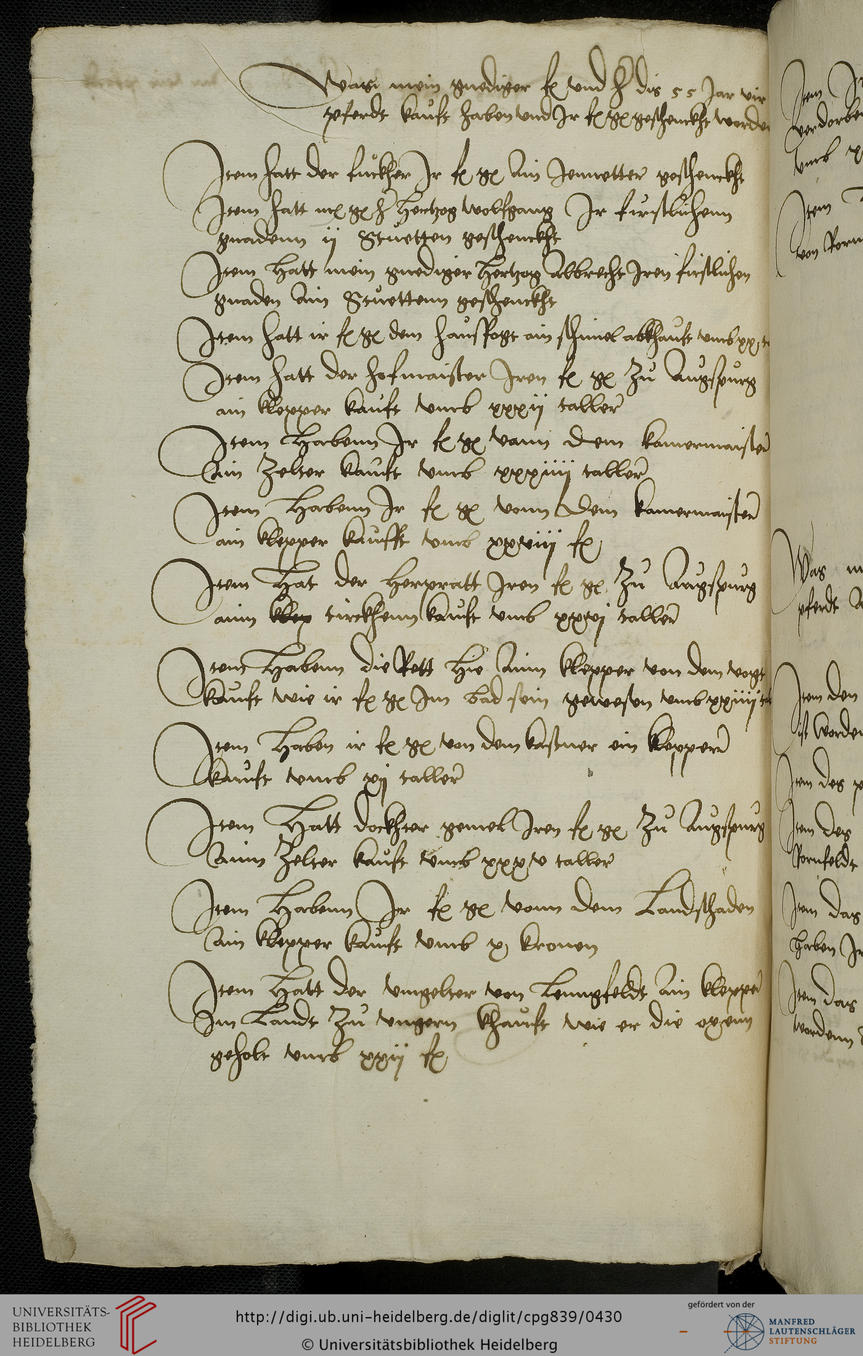 Was mein gnediger f vnd h dis 55 Jar vir
pferdt kauft haben vnd Ir f g geschenckht worden
Item hatt der fuckher Ir f g Ain Jennetter geschenckht
Item hatt m g h Hertzog wolfgang Ir furstlichenn
gnadenn ij Stuetten geschenckht
Item hatt mein gnediger Hertzog Albrecht Iren firstlichen
gnaden Ain Stuettenn geschenckht
Item hatt ir f g dem hausfogt ain schimel abkhauft vmb xx
Item hatt der hofmaister Iren f g Zu Augspurg
ain klepper kauft vmb xxxij taller
Item Habenn Ir f g vonn dem kamermaister
Ain Zelter kauft vmb xxxiiij taller
Item Habenn Ir f g vonn dem kamermaister
ain klepper kaufft vmb xxviij f
Item Hat der Iren f g Zu Augspurg
ainn klep tirckhenn kauft vmb xxvj taller
Item Habenn die Rett hie Ainn klepper von dem vogt
kauft wie ir f g Im bad sein gewesen vmb xxiiij
Item Haben ir f g von dem kastner ein klepper
kauft vmb xij taller
Item Hatt dockhter gemel Iren f g Zu Augspurg
Ainn Zelter kauft vmb xxxv taller
Item Habenn Ir f g vonn dem Landschaden
Ain klepper kauft vmb x kronen
Item Hatt der vmgelter von Lenngfeldt Ain klepper
Im Landt Zu vngern khauft wie er die oxenn
geholt vmb xxij f
Item
verdorben
vmb
Item
von
Was
pferdt
Item den
ist worden
Item des
Item des
Item das
haben Ir
Item das
wordenn
UNIVERSITÄTS-
BIBLIOTHEK
HEIDELBERG
http://digi.ub.uni-heidelberg.de/diglit/cpg839/0430
© Universitätsbibliothek Heidelberg
gefördert von der
MANFRED
LAUTENSCHLÄGER
STIFTUNG